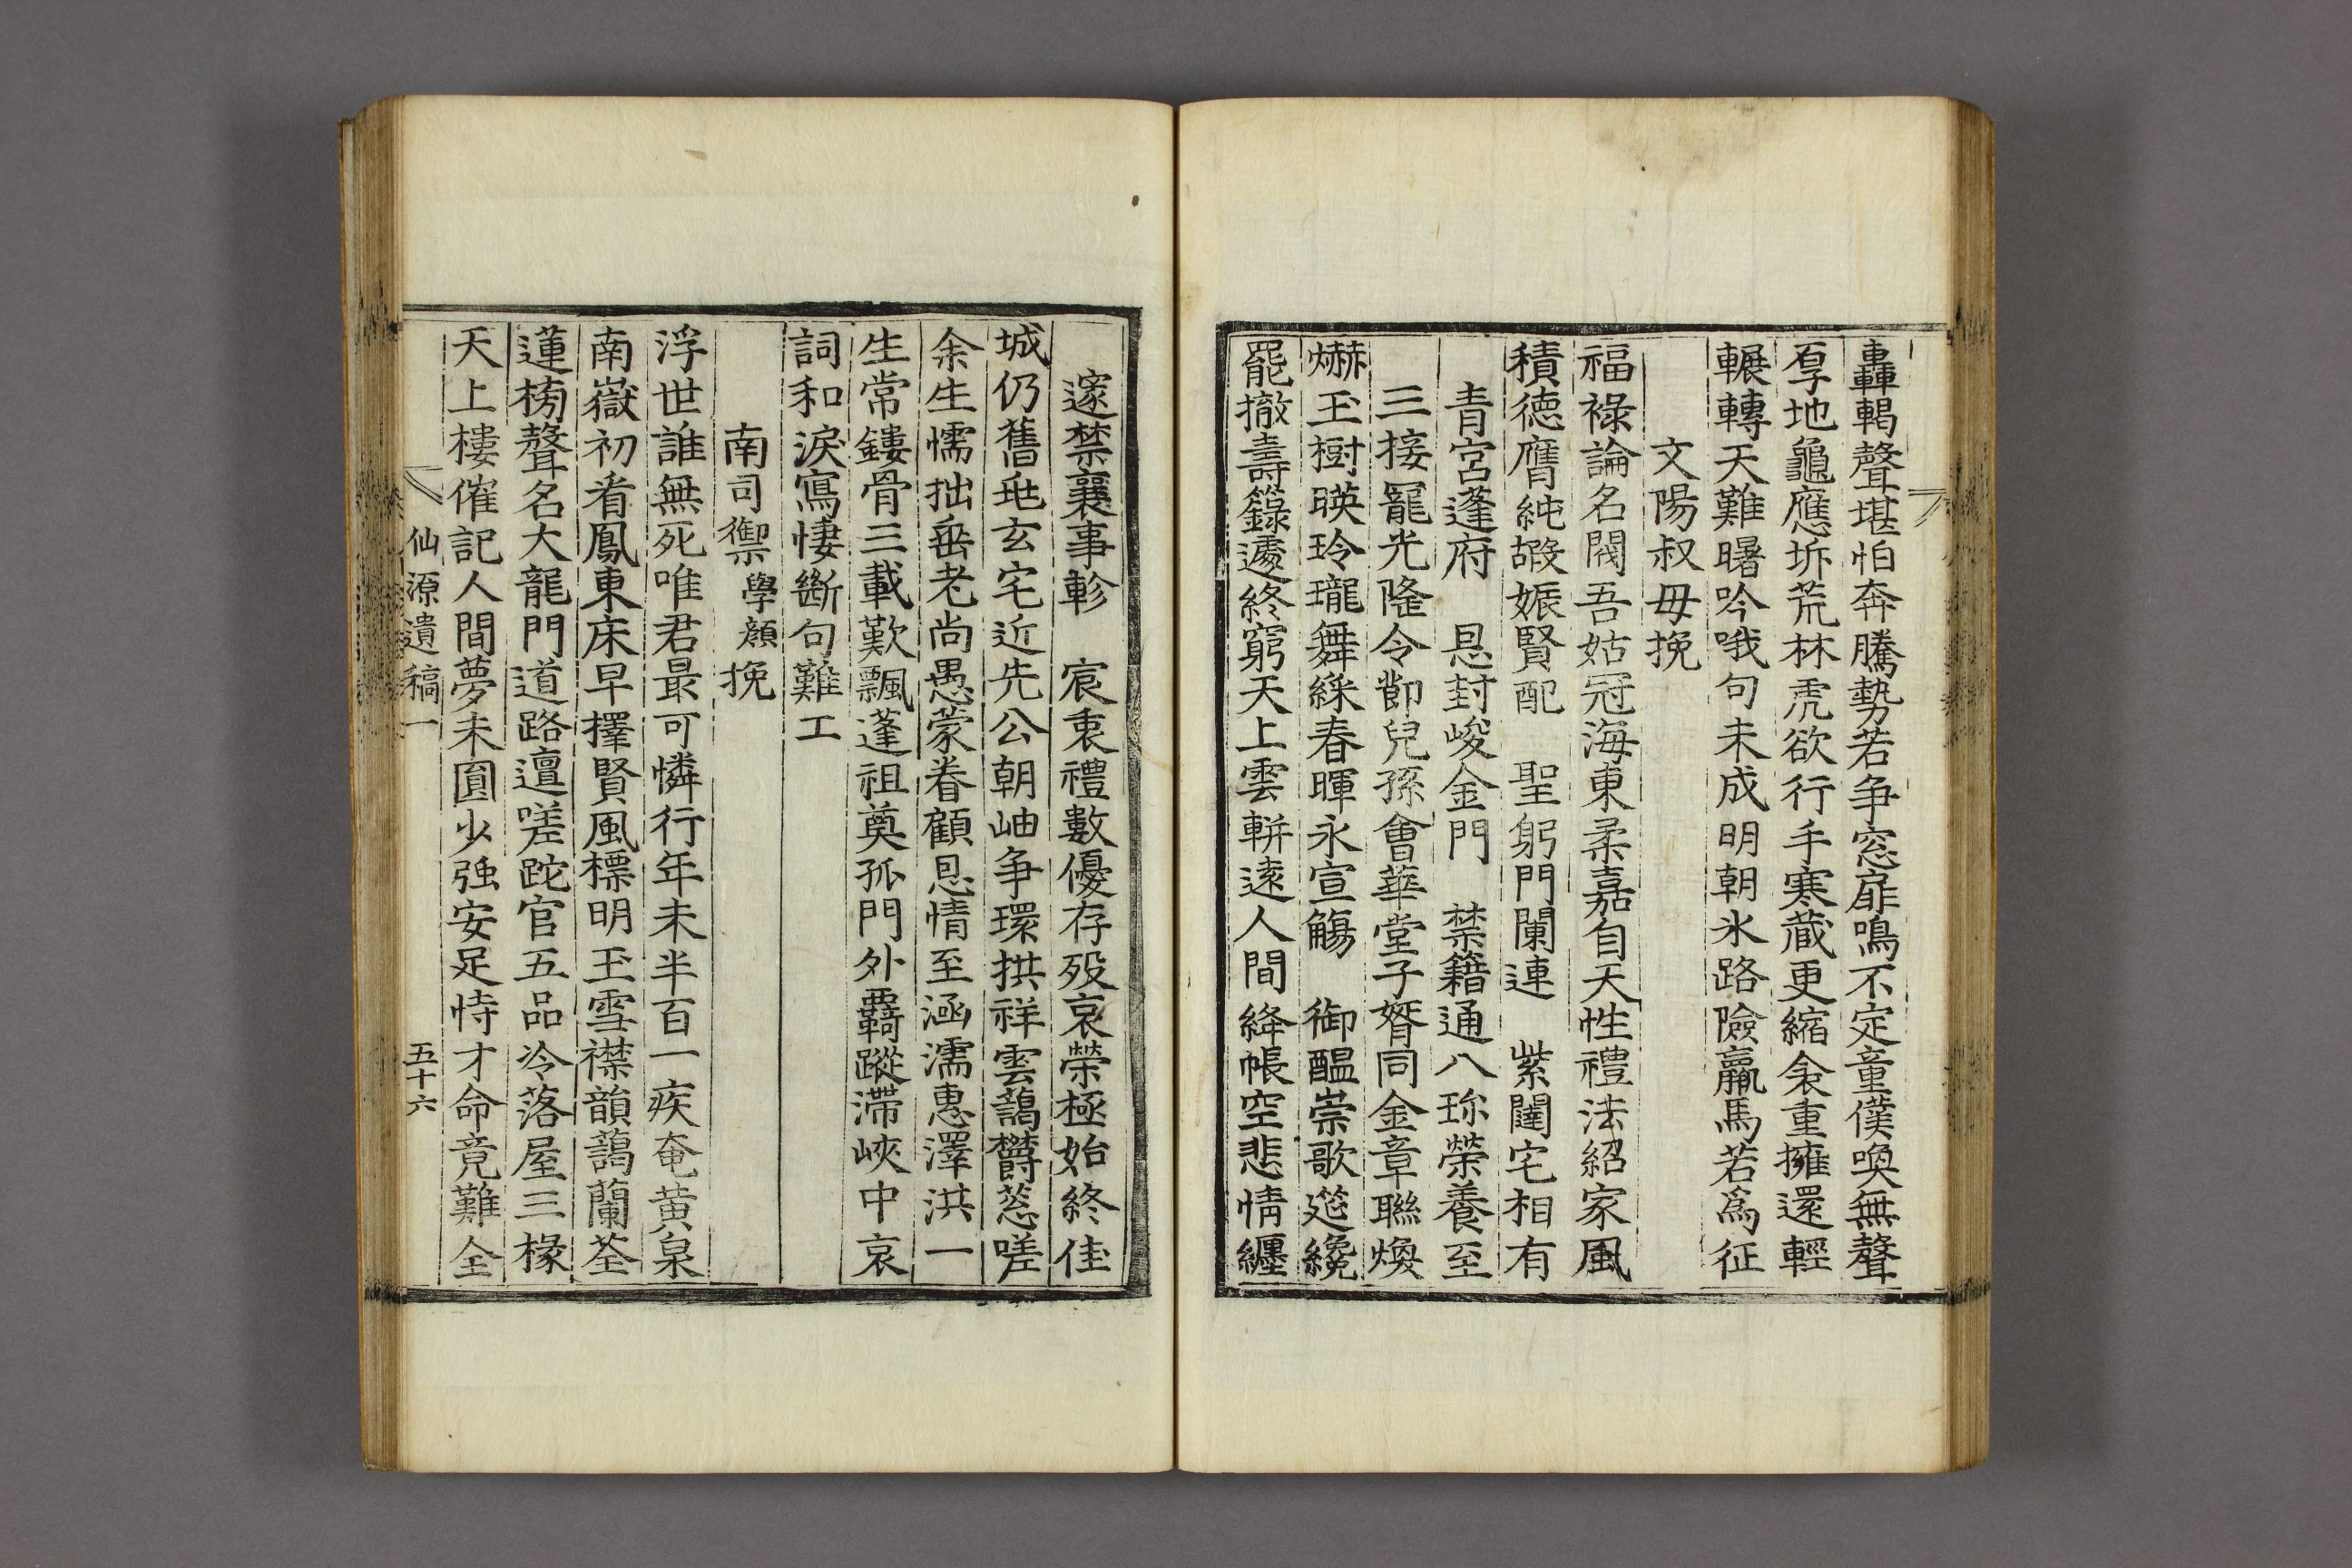 轟輵聲堪怕奔騰勢若爭窓扉鳴不定童僕喚無聲
厚地龜應坼荒林虎欲行手寒藏更縮衾重擁還輕
輾轉天難曙吟哦句未成明朝氷路險羸馬若爲征
文陽叔母挽
福祿論名閥吾姑冠海東柔嘉自天性禮法紹家風
積德膺純嘏娠賢配 聖躬門闌連 紫闥宅相有
青宮蓬府 恩封峻金門 禁籍通八珎榮養至
三接寵光隆令節兒孫會華堂子婿同金章聯煥
爀玉樹暎玲瓏舞綵春暉永宣觴 御醞崇歌筵纔
罷撤壽籙遽終窮天上雲輧遠人間絳帳空悲情纏
邃禁襄事軫 宸衷禮數優存歿哀榮極始終佳
城仍舊兆玄宅近先公朝岫爭環拱祥雲藹欝葱嗟
余生懦拙垂老尚愚蒙眷顧恩情至涵濡惠澤洪一
生常鏤骨三載歎飄蓬祖奠孤門外覊蹤滯峽中哀
詞和淚寫悽斷句難工
南司禦學顔挽
浮世誰無死唯君最可憐行年未半百一疾奄黃泉
南嶽初看鳳東床早擇賢風標明玉雪襟韻藹蘭荃
蓮榜聲名大龍門道路邅嗟跎官五品冷落屋三椽
天上樓催記人間夢未圓少強安足恃才命竟難全
仙源遺稿一 五十六